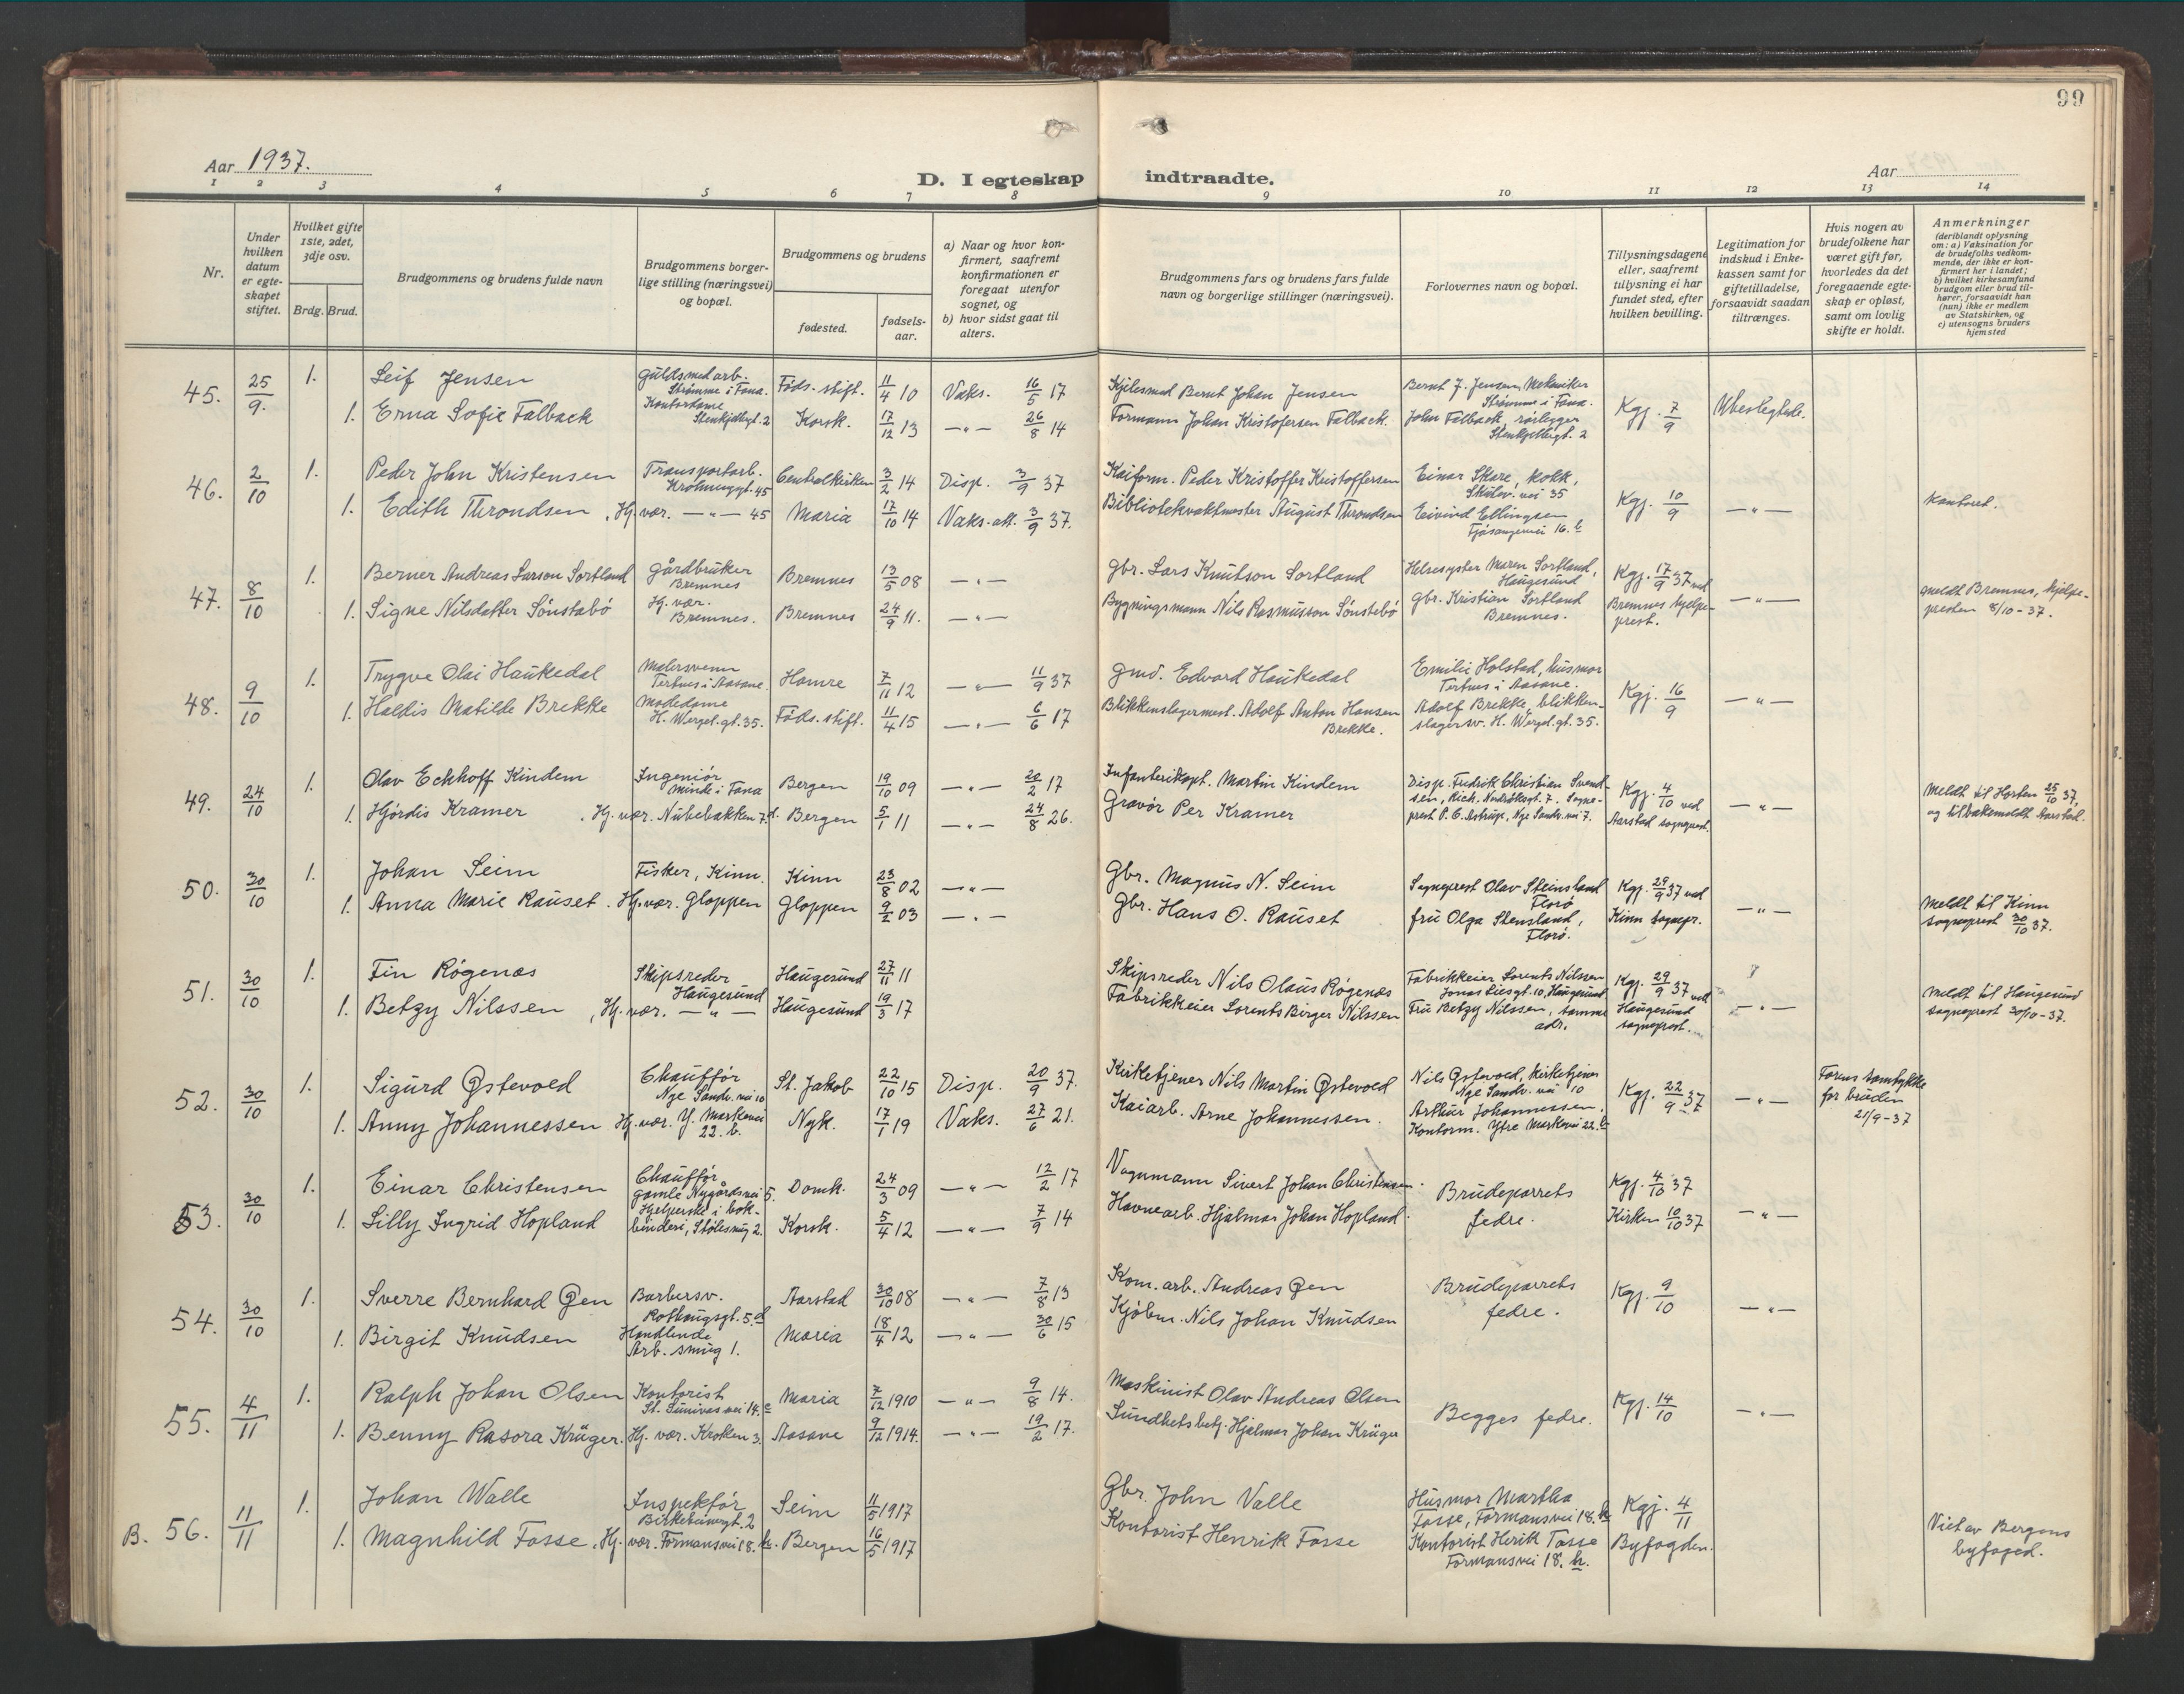 99
Aar 1937.
D. I egteskap indtraadte.
Aar
1 2 3 4 5 6 7 8 9 10 11 12 13 14
Nr.
Under hvilken datum er egteskapet stiftet.
Hvilket gifte 1ste, 2det, 3dje osv.
Brdg. Brud.
Brudgommens og brudens fulde navn
Brudgommens borgerlige stilling (næringsvei) og bopæl.
Brudgommens og brudens
fødested.
fødselsaar.
a) Naar og hvor konfirmert, saafremt konfirmationen er foregaat utenfor sognet, og
b) hvor sidst gaat til alters.
Brudgommens fars og brudens fars fulde navn og borgerlige stillinger (næringsvei).
Forlovernes navn og bopæl.
Tillysningsdagene eller, saafremt tillysning ei har fundet sted, efter hvilken bevilling.
Legitimation for indskud i Enkekassen samt for giftetilladelse, forsaavidt saadan tiltrænges.
Hvis nogen av brudefolkene har været gift før, hvorledes da det foregaaende egteskap er opløst, samt om lovlig skifte er holdt.
Anmerkninger (deriblandt oplysning om: a) Vaksination for de brudefolks vedkommende, der ikke er konfirmert her i landet; b) hvilket kirkesamfund brudgom eller brud tilhører, forsaavidt han (hun) ikke er medlem av Statskirken, og c) utensogns bruders hjemsted
45. 25/9. 1. Leif Jensen Guldsmed arb. Strømme i Fana. Føds. stift. 11/4 10 Vaks. 16/5 17 Kjelesmed Bernt Johan Jensen Bernt J. Jensen, Mekaniker Strømme i Fana. Kgj. 7/9 Ubeslegtede.
1. Erna Sofie Falback Kontordame Stenkjellergt. 2 Korsk. 17/12 13 —"— 26/8 14 Formann Johan Kristofersen Falback. John Falback, rørlegger Stenkjellergt. 2
46. 2/10 1. Peder John Kristensen Transportarb. Krohnengt. 45 Centralkirken 3/2 14 Disp. 3/9 37 Kaiform. Peder Kristoffer Kristoffersen Einar Skare, kokk, Skutev. vei 35 Kgj. 10/9 —"— Kontoret.
1. Edith Throndsen, Hj. vær. —"— 45 Maria 17/10 14 Vaks. att. 3/9 37. Bibliotekvaktmester August Throndsen Eivind Ellingsen Fjøsangervei 16. b
47. 8/10 1. Berner Andreas Larson Sortland Gårdbruker Bremnes Bremnes 13/5 08 —"— Gbr. Lars Knutson Sortland Helsesyster Maren Sortland, Haugesund Kgj. 17/9 37 ved Bremnes hjelpeprest. —"— Meldt Bremnes, hjelpepresten 8/10-37.
1. Signe Nilsdatter Sønstabø Hj. vær. Bremnes. Bremnes 24/9 11. —"— Bygningsmann Nils Rasmusson Sønstebø Gbr. Kristian Sortland Bremnes.
48. 9/10 1. Trygve Olai Haukedal Malersvenn Tertnes i Aasane. Hamre 7/11 12 —"— 11/9 37 Gmd. Edvard Haukedal Emilie Holstad, husmor Tertnes i Aasane. Kgj. 16/9 —"—
1. Haldis Matilde Brekke Modedame H. Wergel. gt. 35. Føds. stift. 11/4 15 —"— 6/6 17 Blikkenslagermest. Adolf Anton Hansen Brekke. Adolf Brekke, blikkenslagersv. H. Wergel. gt. 35.
49. 24/10 1. Olav Eckhoff Kindem Ingeniør Minde i Fana Bergen 19/10 09 —"— 20/2 17 Infanterikapt. Martin Kindem Disp. Fredrik Christian Svendsen, Rich. Nordråksgt. 7. Sogneprest P. C. Astrup, Nye Sandv. vei 7. Kgj. 4/10 ved Aarstad sogneprest. —"— Meldt til Horten 25/10 37, og tilbakemeldt Aarstad.
1. Hjørdis Kramer, Hj. vær. Nubebakken 7. d. Bergen 5/1 11 —"— 24/8 26. Gravør Per Kramer
50. 30/10 1. Johan Seim Fisker, Kinn. Kinn 23/8 02 —"— Gbr. Magnus N. Seim Sogneprest Olav Steinsland Florø Kgj. 29/9 37 ved Kinn sognepr. —"— Meldt til Kinn sogneprest 30/10 37.
1. Anna Marie Rauset. Hj. vær. Gloppen Gloppen 9/2 03 —"— Gbr. Hans O. Rauset fru Olga Stensland, Florø.
51. 30/10 1. Fin Røgenæs Skipsreder Haugesund Haugesund 27/11 11 Skipsreder Nils Olaus Røgenæs Fabrikkeier Lorents Nilssen Jonas Liesgt. 10, Haugesund Kgj. 29/9 37 ved Haugesund sogneprest. —"— Meldt til Haugesund sogneprest 30/10-37.
1. Betzy Nilssen, Hj. vær. —"— Haugesund 19/3 17 Fabrikkeier Lorents Birger Nilssen Fru Betzy Nilssen, samme adr.
52. 30/10 1. Sigurd Østevold Chauffør Nye Sandv. vei 10 St. Jakob 22/10 15 Disp. 20/9 37. Kirketjener Nils Martin Østevold Nils Østevold, kirketjener Nye Sandv. vei 10 Kgj. 22/9 37 —"— Farens samtykke for bruden 21/9-37
1. Anny Johannessen Hj. vær. Y. Markevei 22. b. Nyk. 17/1 19 Vaks. 27/6 21. Kaiarb. Arne Johannessen. Arthur Johannessen. Kontorm. Ytre Markevei 22. b
53. 30/10 1. Einar Christensen Chauffør, gamle Nygårdsvei 5. Domk. 24/3 09 —"— 12/2 17 Vognmann Sivert Johan Christensen. Brudeparrets fedre. Kgj. 4/10 37 Kirken 10/10 37 —"—
1. Lilly Ingrid Hopland Hjelperske i bokbinderi, Stølesmug 2. Korsk. 5/4 12 —"— 7/9 14 Havnearb. Hjalmar Johan Hopland.
54. 30/10 1. Sverre Bernhard Øen Barbersv. Rothaugsgt. 5. d Aarstad 30/10 08 —"— 7/8 13 Kom. arb. Andreas Øen Brudeparrets fedre. Kgj. 9/10 —"—
1. Birgit Knudsen Handlende Arb. smug 1. Maria 18/4 12 —"— 30/6 15 Kjøbm. Nils Johan Knudsen
55. 4/11 1. Ralph Johan Olsen Kontorist St. Sunivas vei 14. c Maria 7/12 1910 —"— 9/8 14. Maskinist Olav Andreas Olsen Begges fedre. Kgj. 14/10 —"—
1. Benny Rasora Krüger. Hj. vær. Kroken 3. Aasane 9/12 1914. —"— 19/2 17. Sundhetsbetj. Hjalmar Johan Krüger
B. 56. 11/11 1. Johan Walle Inspektør Birkebeinergt. 2 Seim 11/5 1917 Gbr. John Valle Husmor Martha Fosse, Formansvei 18. h Kgj. 4/11 Byfogden. Viet av Bergens byfoged.
1. Magnhild Fosse. Hj. vær. Formansvei 18. h. Bergen 16/5 1917 Kontorist Henrik Fosse Kontorist Herik Fosse Formansvei 18. h.